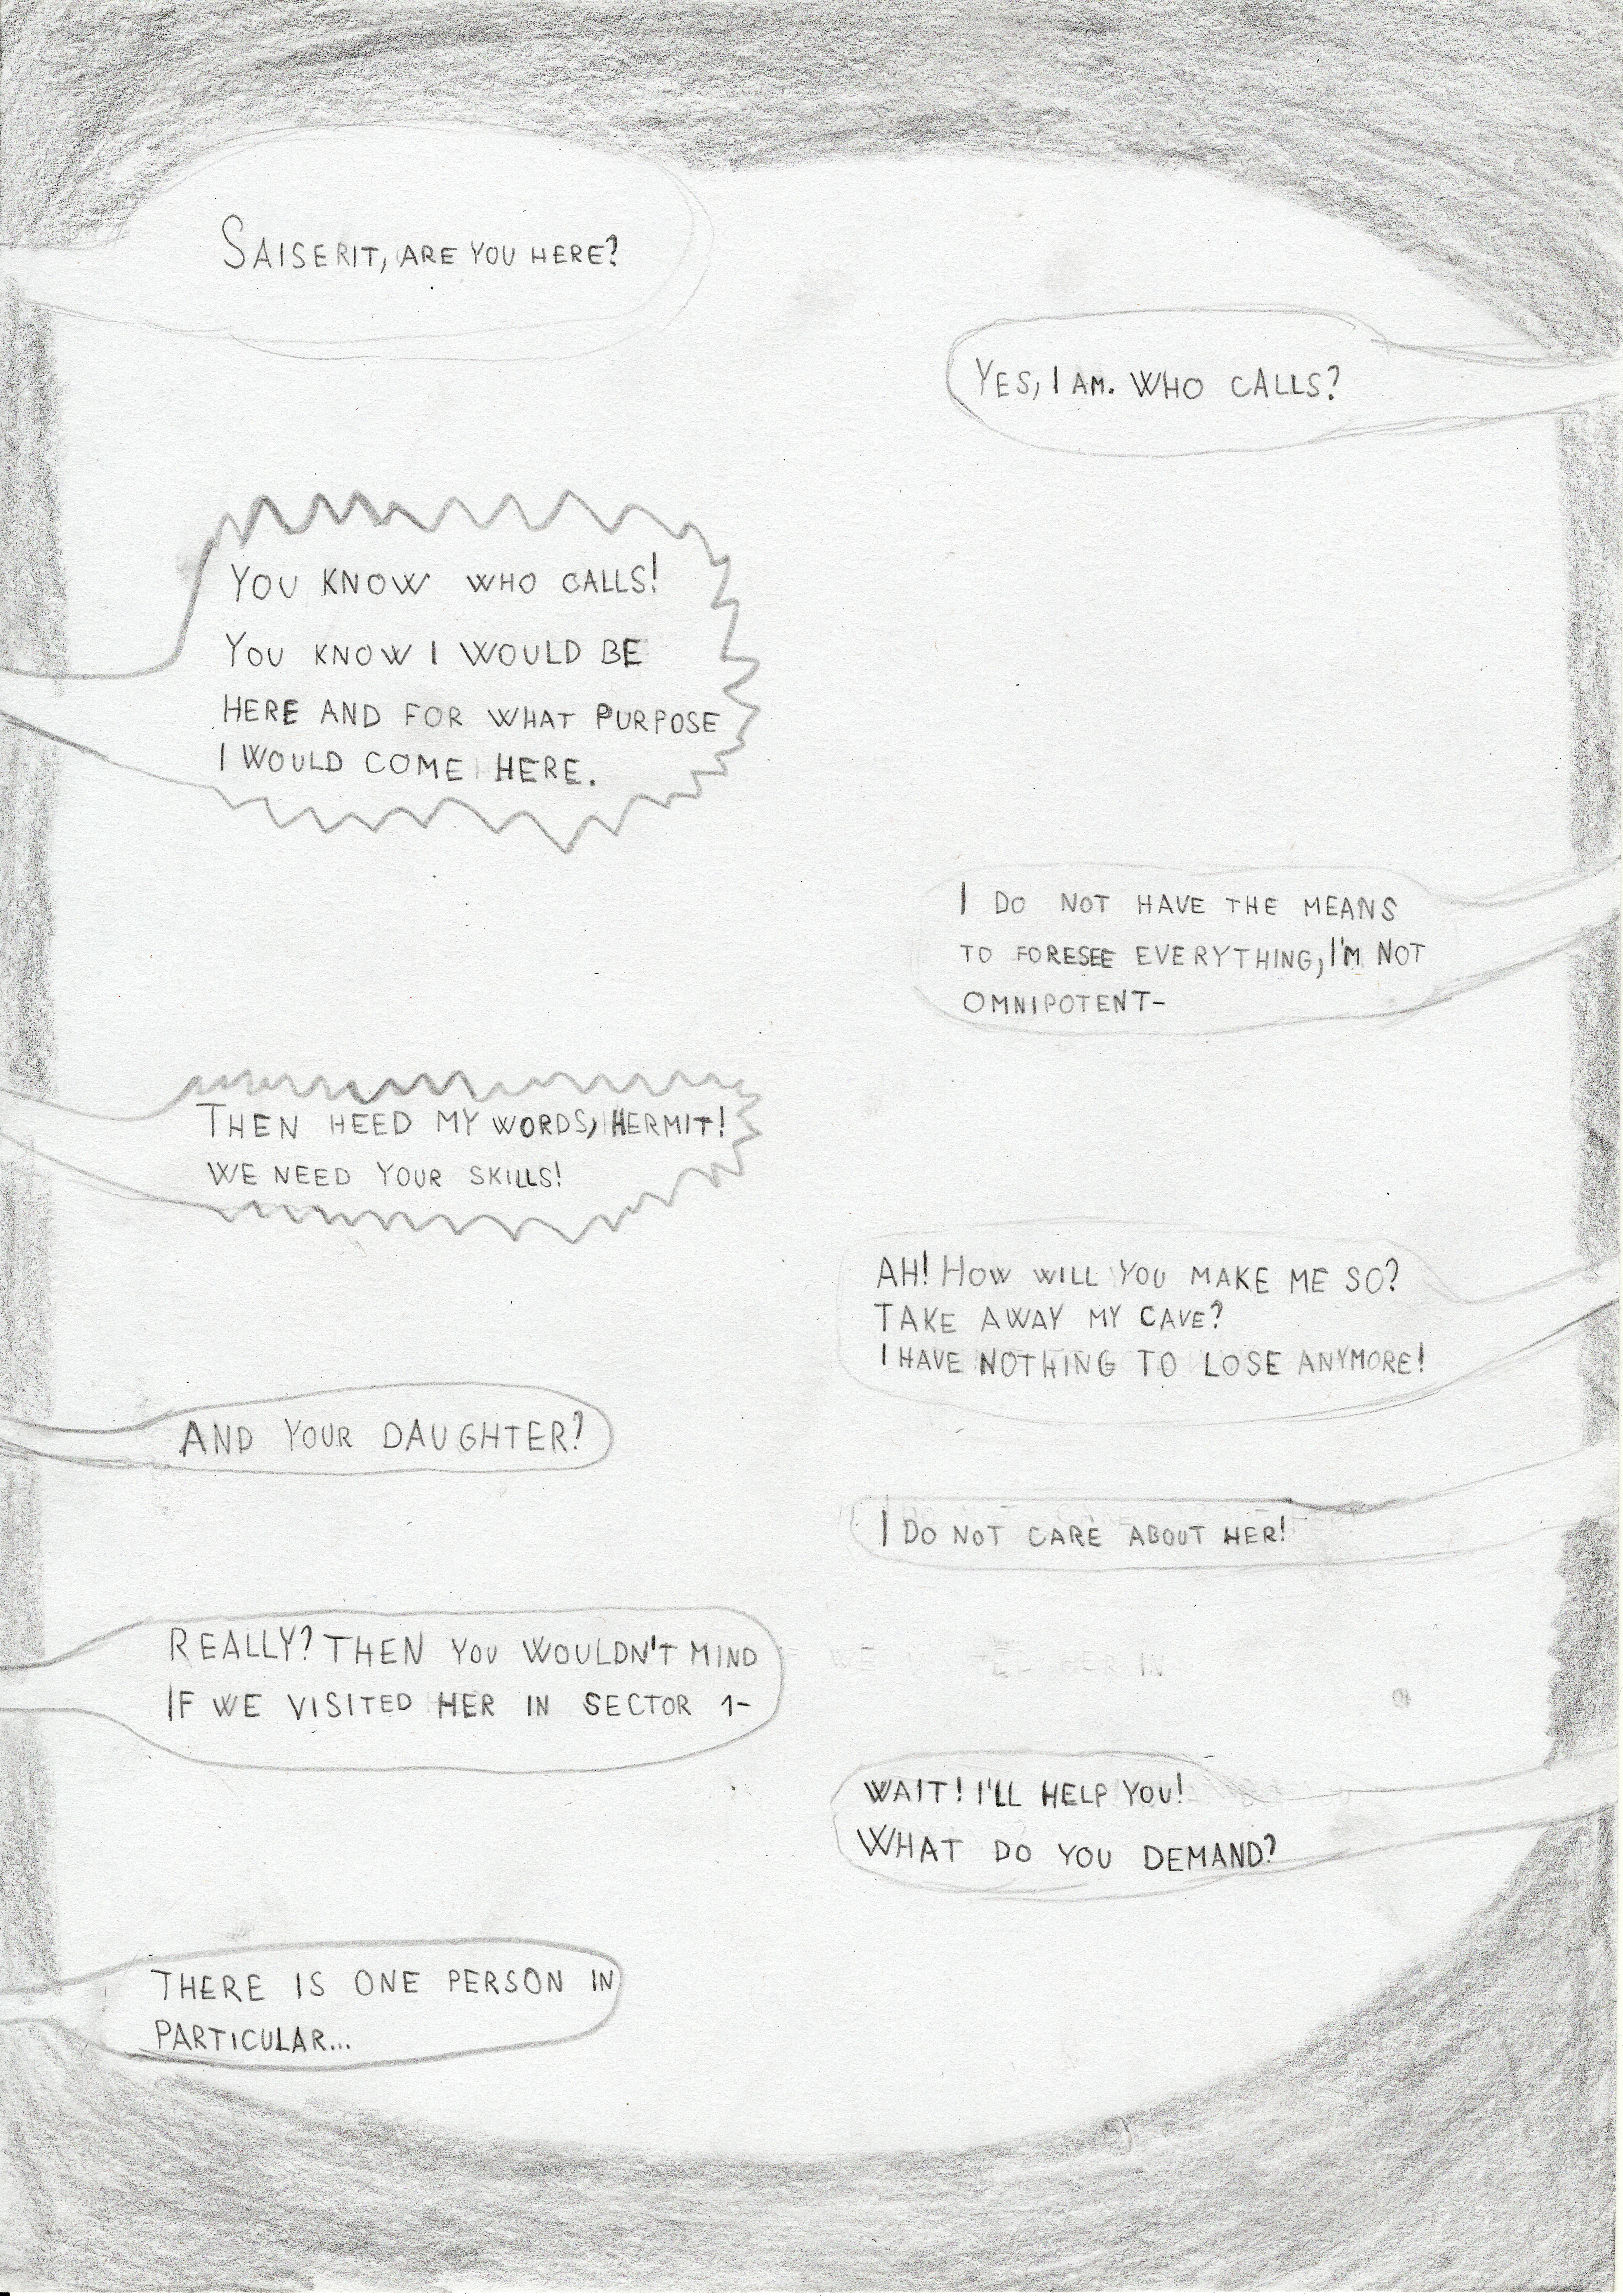 SAISERIT, ARE YOU HERE?
YES, I AM. WHO CALLS?
YOU KNOW WHO CALLS!
YOU KNOW I WOULD BE
HERE AND FOR WHAT PURPOSE
I WOULD COME HERE.
I DO NOT HAVE THE MEANS
TO FORESEE EVERYTHING, I'M NOT
OMNIPOTENT-
THEN HEED MY WORDS, HERMIT!
WE NEED YOUR SKILLS!
AH! HOW WILL YOU MAKE ME SO?
TAKE AWAY MY CAVE?
I HAVE NOTHING TO LOSE ANYMORE!
AND YOUR DAUGHTER?
I DO NOT CARE ABOUT HER!
REALLY? THEN YOU WOULDN'T MIND
IF WE VISITED HER IN SECTOR 1-
WAIT! I'LL HELP YOU!
WHAT DO YOU DEMAND?
THERE IS ONE PERSON IN
PARTICULAR...